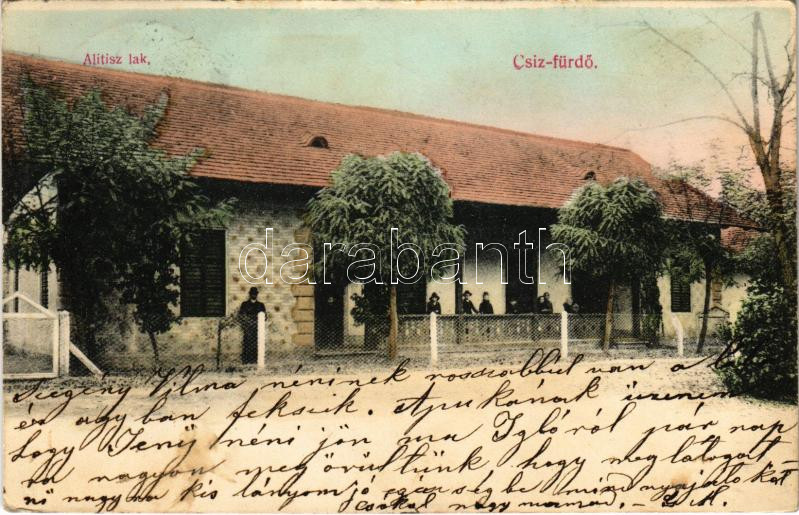 Alitisz lak.
Csiz-fürdő.
darabanth
Szegény Vilma néninek rosszabbul van a
és ágyban fekszik. Apukának üzenem
hogy Jenij néni jön ma Iglóról pár nap
ra nagyon megörültünk hogy meglátogat
nő nagyna kis lányom jó egészségbe mind nyájatokat
csokol nagymama. –